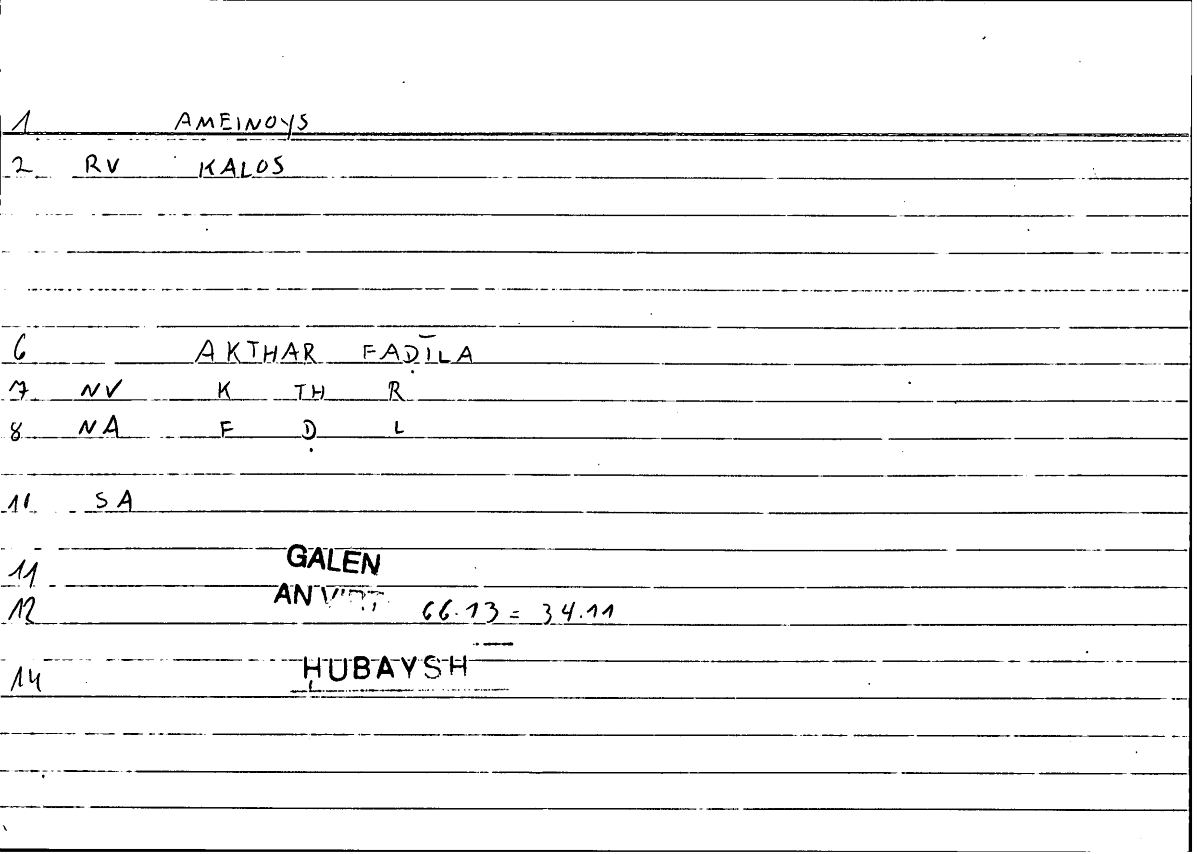 1 AMEINOYS
2 RV KALOS
6 AKTHAR FAḌĪLA
7 NV K TH R
8 NA F Ḍ L
10 SA
11 GALEN
12 AN VIRT 66.13 = 34.11
14 ḤUBAYSH